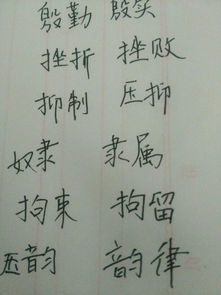 殷勤 殷实
挫折 挫败
抑制 压抑
奴隶 隶属
拘束 拘留
压韵 韵律